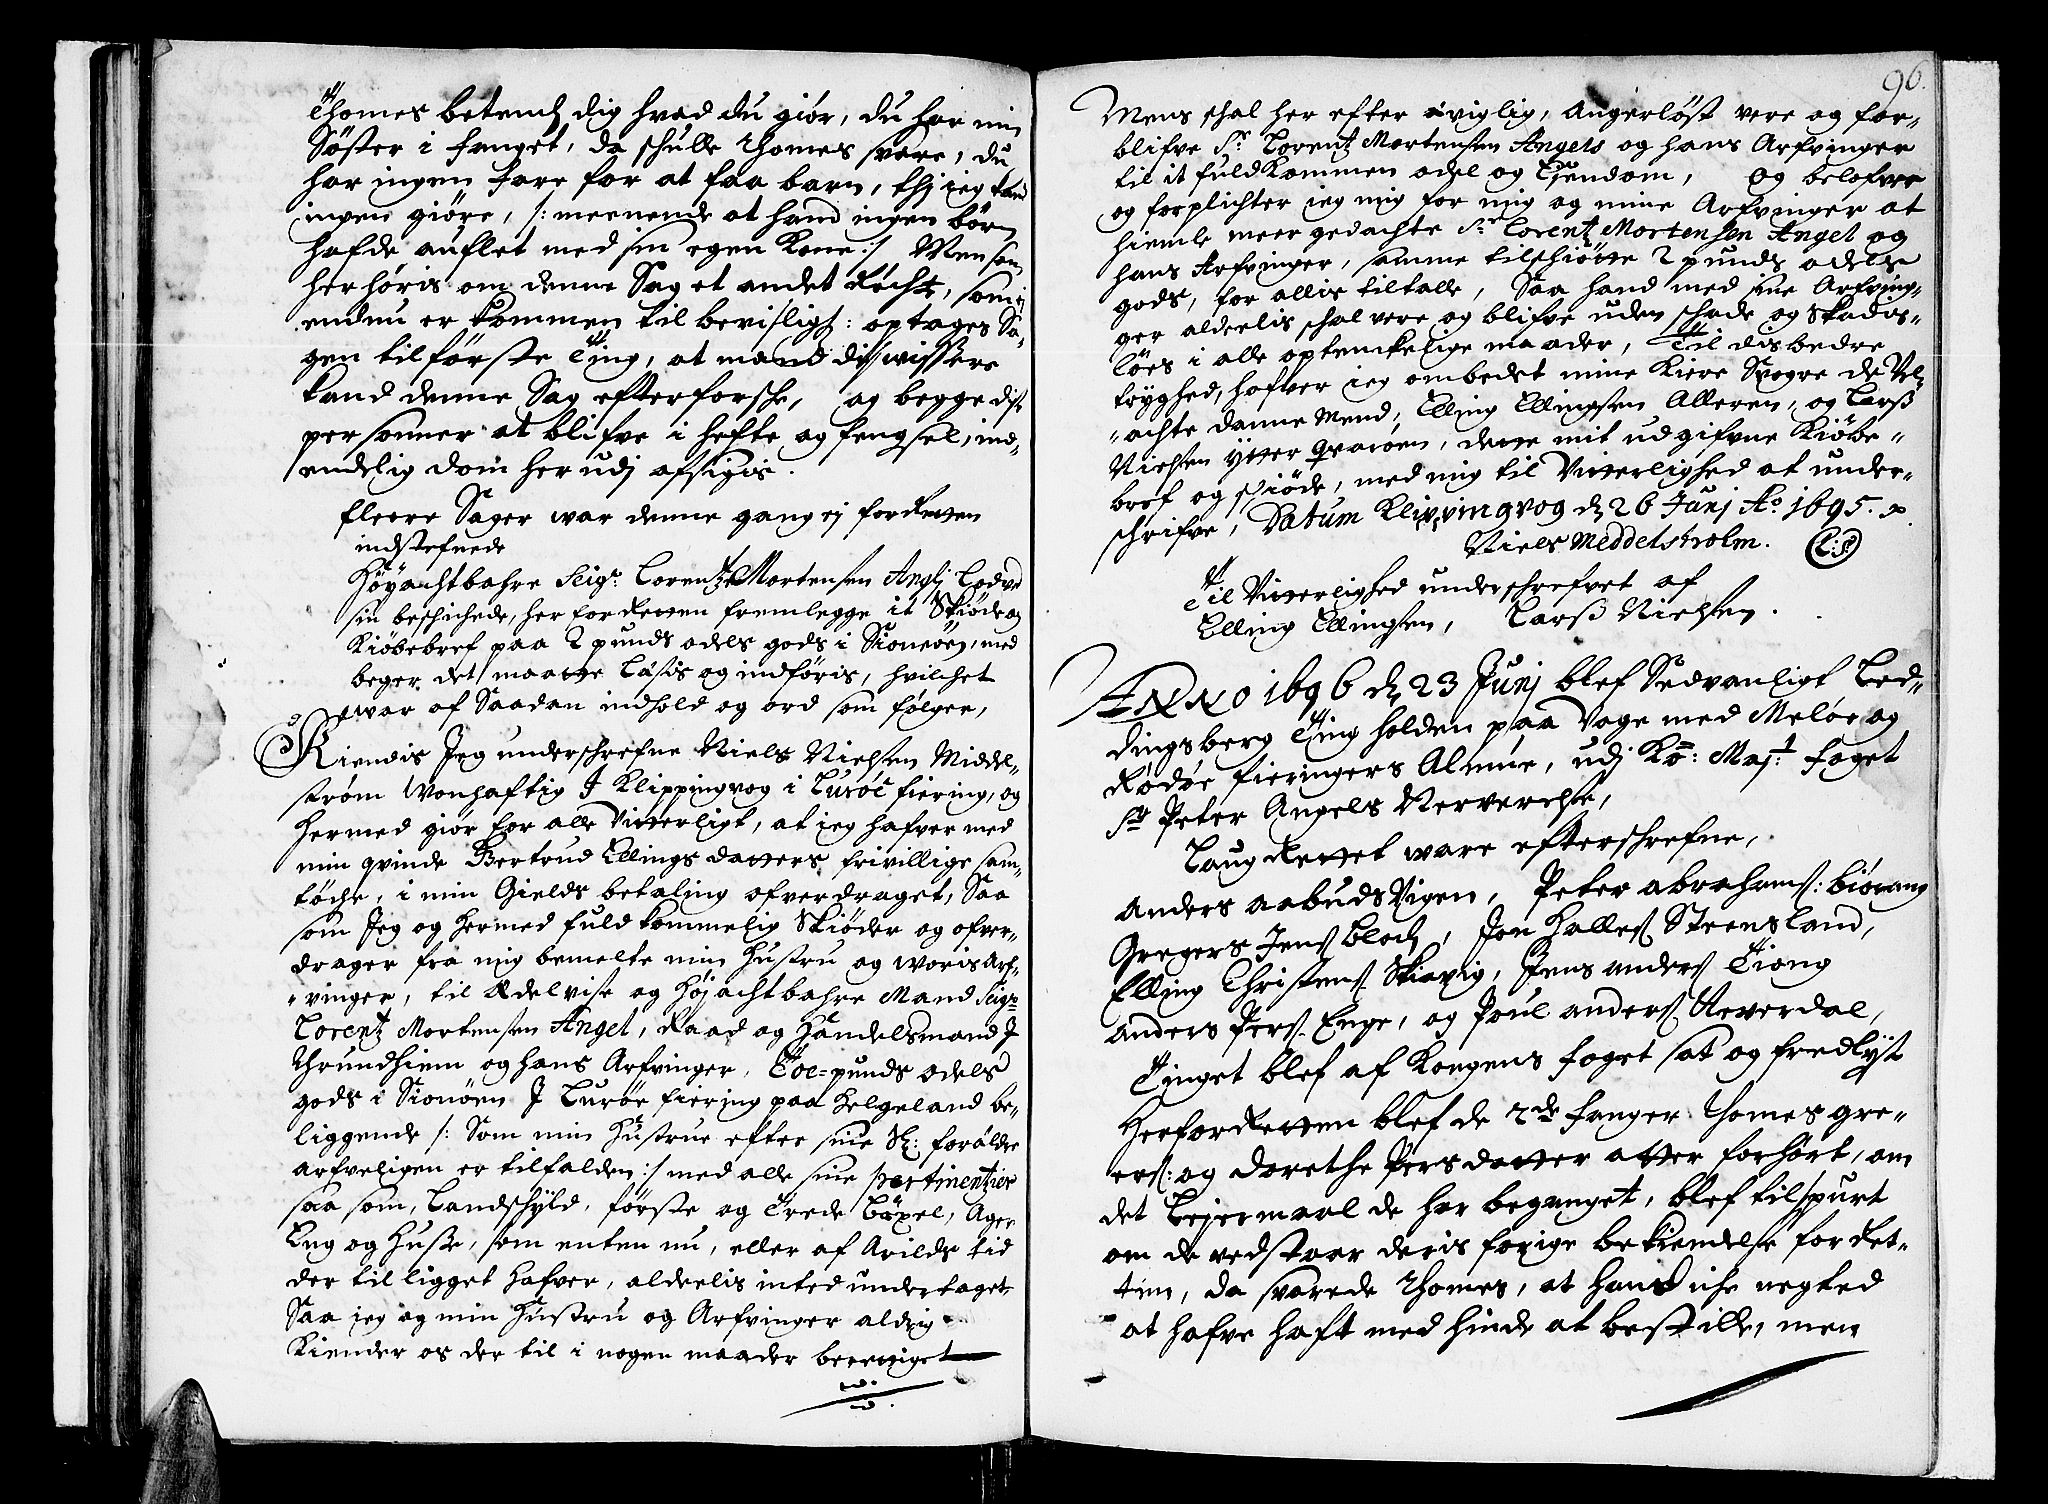 Thomes betench dig hvad du giør, du har min
Søster i fanget, da schulle Thomes svare, du
har ingen fare for at faa barn, thj ieg kand
ingen giøre, /: meenende at hand ingen børn
hafde auflet med sin egen Kone :/ Men som
her høris om denne Sag et andet Røchte, som ej
endnu er kommen til bevisligh: optages Sa-
gen til første Ting, at mand diss wissere
kand denne Sag efterforsche, og begge disse
personner at blifve i hefte og fengsel, ind-
endelig dom her udj afsigis.
fleere Sager war denne gang ej for Retten
indstefnede
Høyachtbahre Seigr. Lorentz Mortensen Angel Lod ved
sin beschichede, her for Retten fremlegge it Skiøde og
Kiøbebref paa 2 punds odels gods i Sionøen, med
beger det maatte Læsis og indføris, hvilchet
war af Saadan indhold og ord som følger,
Kiendis Jeg underschrefne Niels Nielsen Middel-
strøm Wonhaftig J Klippingvog i Lurøe fiering, og
hermed giør for alle Vitterligt, at ieg hafver med
min qvinde Bertrud Ellings datters frivillige sam-
tøche, i min Gields betaling ofverdraget, Saa
som Jeg og hermed fuldkommelig Skiøder og ofver-
drager fra mig bemelte min Hustru og woris Arf-
vinger, til Edelvise og Høj achtbahre Mand Seigr.
Lorentz Mortensen Angel, Raad og Handelsmand J
Thrundhiem og hans Arfvinger, Toe-punds odels
gods i Sionøen J Lurøe fiering paa Helgeland be-
liggende /: Som min Hustrue efter sine Sl: forældre
arfveligen er tilfalden :/ med alle sine pertinentier
saa som, Landschyld, første og Trede Böxel, Ager
Eng og Huse, som enten nu, eller af Arilds tid
der til ligget hafver, alderlis inted undertaget
Saa ieg og min Hustru og Arfvinger aldrig
Kiender os der til i nogen maader berettiget
96.
Mens schal her efter Eviglig, Angerløst vere og for-
blifve Sr. Lorentz Mortensen Angels og hans Arfvinger
til it fuldkommen odel og Ejendom, og belofver
og forplichter ieg mig for mig og mine Arfvinger at
hiemle meergedachte Sr. Lorentz Mortensen Angel og
hans Arfvinger, samme tilschiøtte 2 punds odels
gods, for allis tiltalle, Saa hand med sine Arfving-
ger alderlis schal vere og blifve uden schade og Skadis-
løes i alle optenckelige maader, Til dis bedre
tryghed, hafver ieg ombedet mine Kiere Svogre de Vel-
achte danne Mend, Elling Ellingsen Alleren, og Larss
Nielsen Ytter qvarøen, dette mit udgifvne Kiøbe-
bref og schiøde, med mig til Vitterlighed at under-
schrifve, Datum Klippingvog d. 26 Junj Ao. 1695.
Niels Meddelstrølm. (L:S)
Til Vitterlighed underschrefvet af
Elling Ellingsen, Larss Nielsen.
ANNO 1696 d. 23 Junj blef Sedvanligt Led-
dingsberg Ting holden paa Vage med Meløe og
Rødøe fieringers Almue, udj Ko: Maj:t foget
Sr Peter Angels Nerverelse,
Laug Rettet ware efterschrefne,
Anders Aabuds Vigen, Peter Abrahams: biørang
Gregers Jens Bloch, Jon Halles Steensland,
Elling Christens Skiævig, Jens Anders Tiong
Anders Pers. Enge, og Poul Anders Reverdal,
Tinget blef af Kongens foget sat og fredlyst
Her for Retten blef de 2de fanger Thomes Gre-
ers: og Dorethe Pers datter atter forhørt, om
det Leyermaal de har begaaget, blef tilspurt
om de vedstaar deris forige bekiendelse for Ret-
ten, da svarede Thomes, at hand iche negted
at hafve haft med hinde at bestille, men